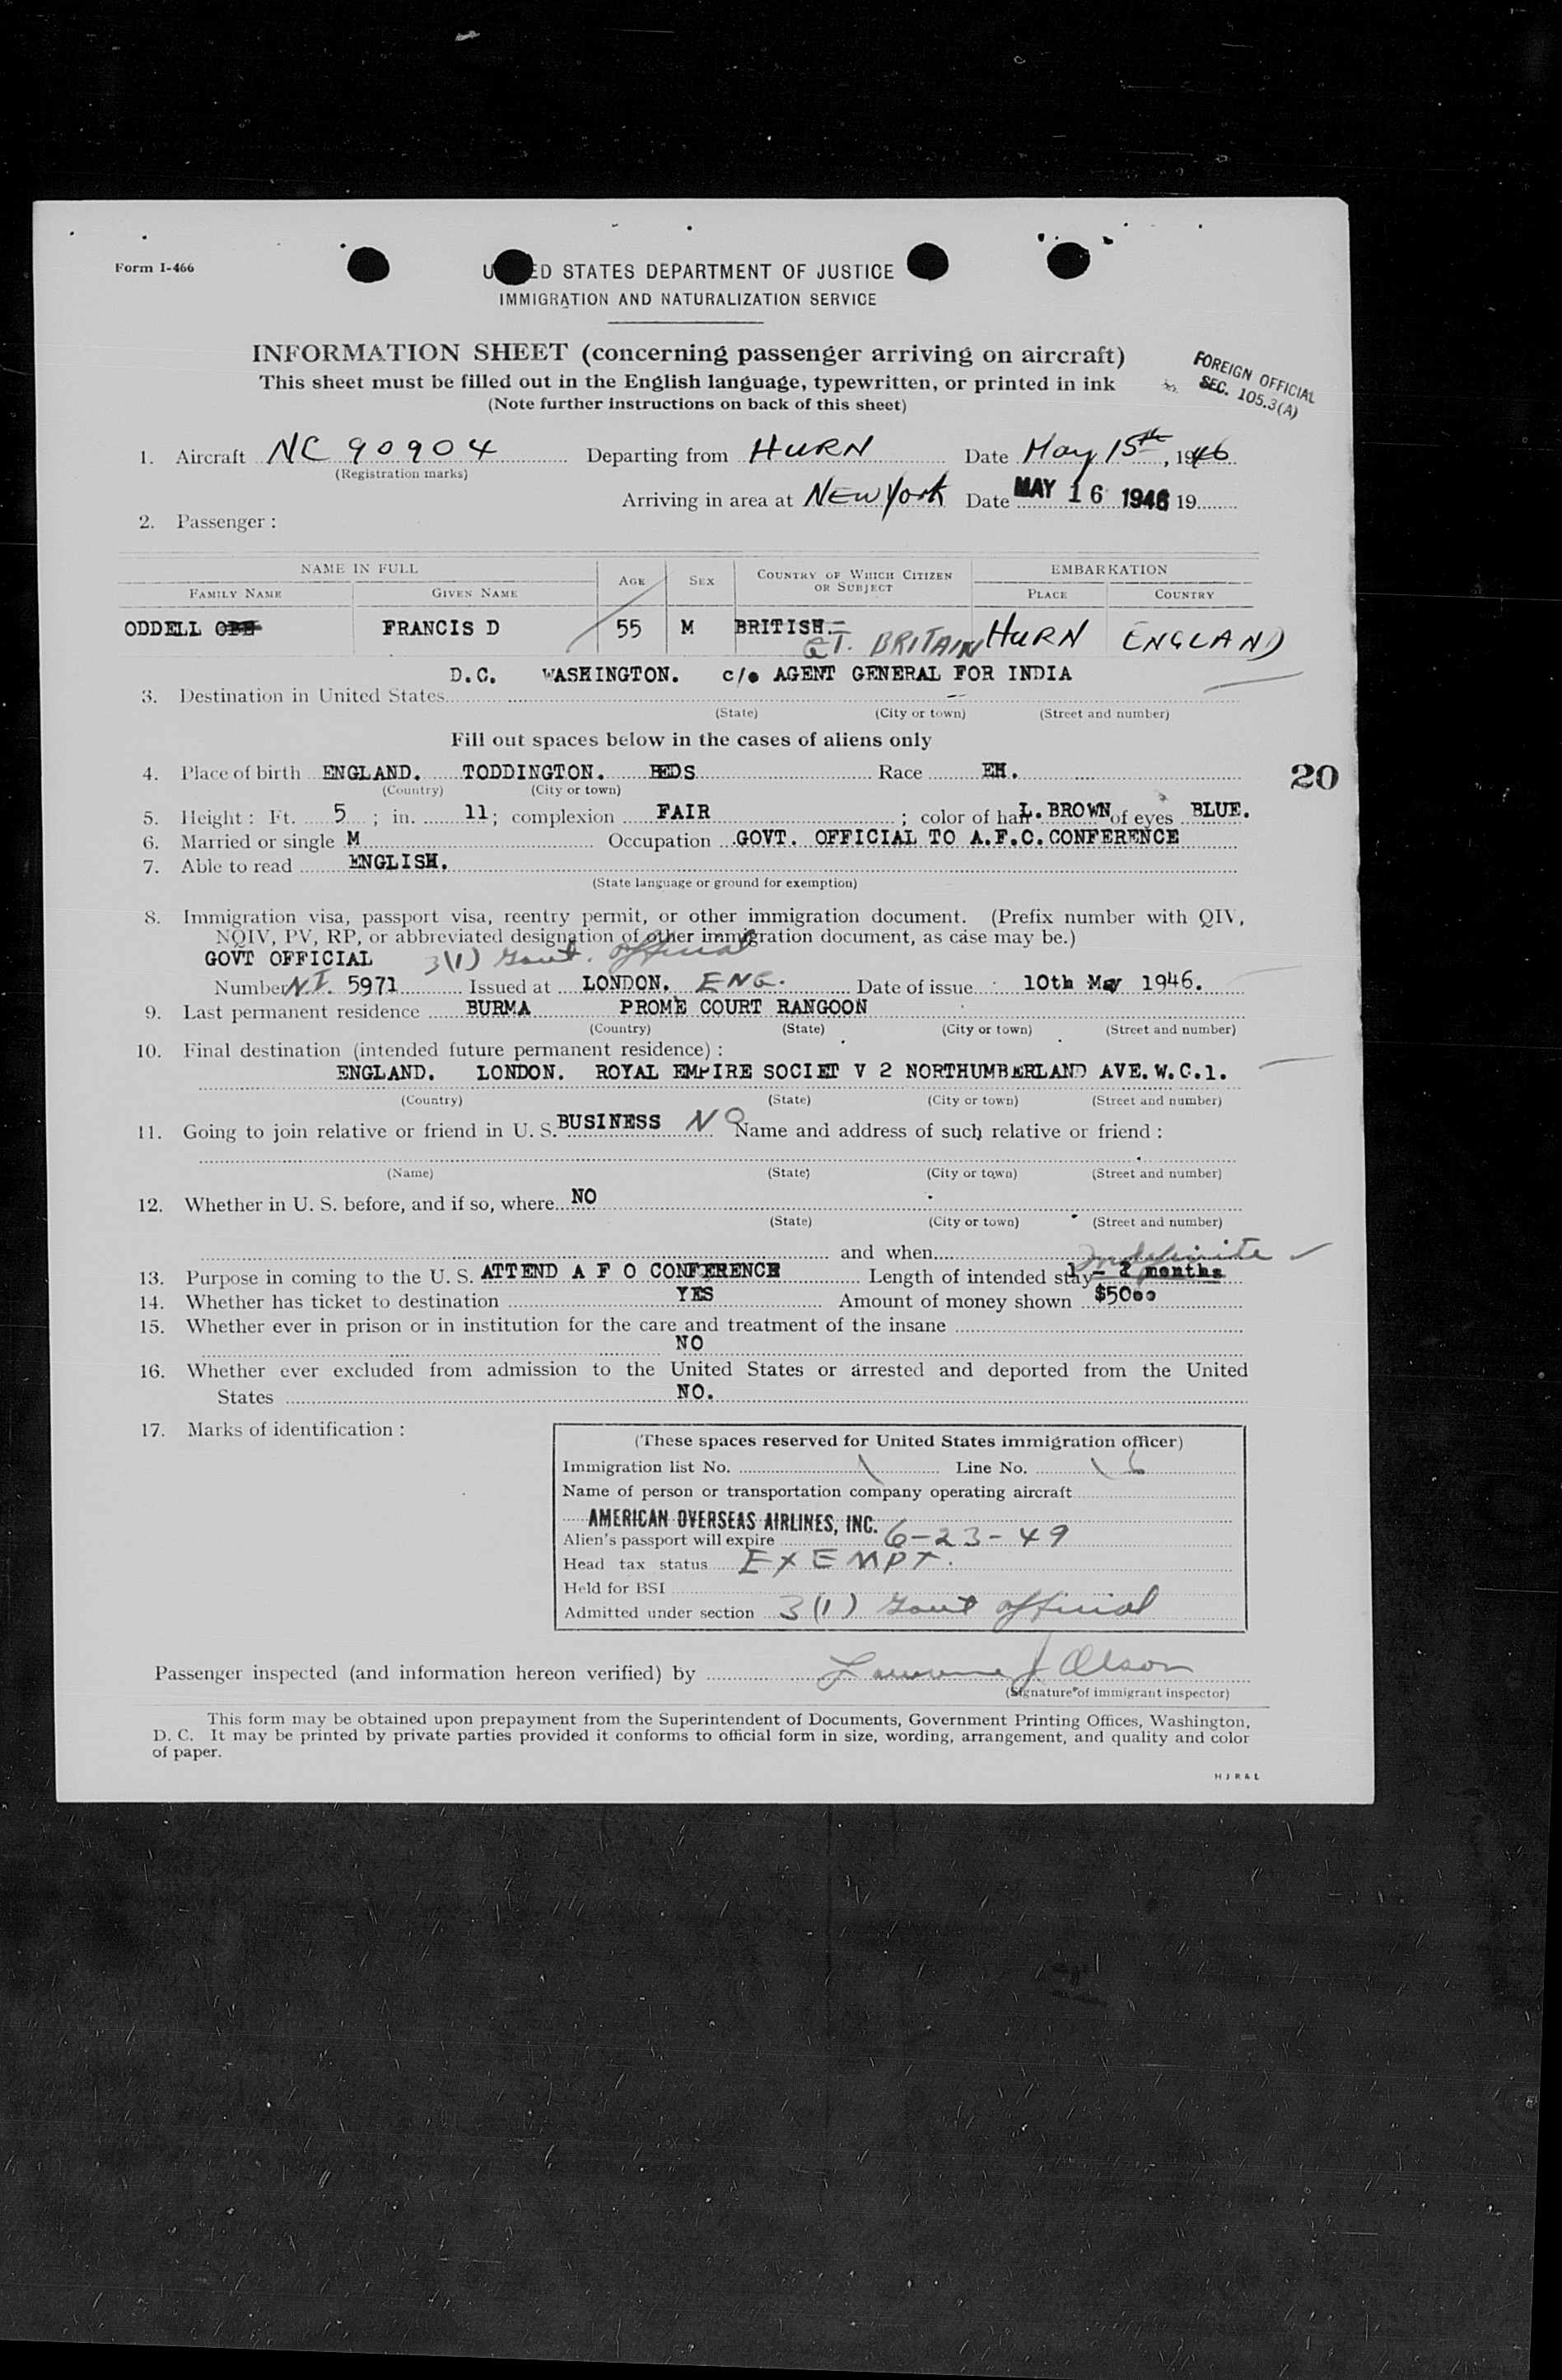 Form I-466
UNITED STATES DEPARTMENT OF JUSTICE
IMMIGRATION AND NATURALIZATION SERVICE
INFORMATION SHEET (concerning passenger arriving on aircraft)
This sheet must be filled out in the English language, typewritten, or printed in ink
(Note further instructions on back of this sheet)
FOREIGN OFFICIAL
SEC. 105.3(A)
1. Aircraft NC 90904 Departing from HURN Date May 15th, 1946
(Registration marks)
Arriving in area at NEW York Date MAY 16 1946 19
2. Passenger :
NAME IN FULL AGE SEX COUNTRY OF WHICH CITIZEN OR SUBJECT EMBARKATION
FAMILY NAME GIVEN NAME PLACE COUNTRY
ODDELL FRANCIS D 55 M BRITISH. HURN ENGLAND
GT. BRITAIN
D.C. WASHINGTON. c/o AGENT GENERAL FOR INDIA
3. Destination in United States
(State) (City or town) (Street and number)
Fill out spaces below in the cases of aliens only
4. Place of birth ENGLAND. TODDINGTON. BEDS Race EH.
(Country) (City or town)
20
5. Height : Ft. 5 ; in. 11 ; complexion FAIR ; color of hair L. BROWN of eyes BLUE.
6. Married or single M Occupation GOVT. OFFICIAL TO A.F.C. CONFERENCE
7. Able to read ENGLISH.
(State language or ground for exemption)
8. Immigration visa, passport visa, reentry permit, or other immigration document. (Prefix number with QIV,
NQIV, PV, RP, or abbreviated designation of other immigration document, as case may be.)
GOVT OFFICIAL 3(1) Govt. official
Number N.I. 5971 Issued at LONDON. ENG. Date of issue 10th May 1946.
9. Last permanent residence BURMA PROME COURT RANGOON
(Country) (State) (City or town) (Street and number)
10. Final destination (intended future permanent residence) :
ENGLAND. LONDON. ROYAL EMPIRE SOCIET V 2 NORTHUMBERLAND AVE. W.C.1.
(Country) (State) (City or town) (Street and number)
11. Going to join relative or friend in U. S. BUSINESS NO Name and address of such relative or friend :
(Name) (State) (City or town) (Street and number)
12. Whether in U. S. before, and if so, where NO
(State) (City or town) (Street and number)
and when
indefinite
13. Purpose in coming to the U. S. ATTEND A F O CONFERENCE Length of intended stay 1 - 2 months
14. Whether has ticket to destination YES Amount of money shown $5000
15. Whether ever in prison or in institution for the care and treatment of the insane
NO
16. Whether ever excluded from admission to the United States or arrested and deported from the United
States NO.
17. Marks of identification :
(These spaces reserved for United States immigration officer)
Immigration list No. 1 Line No. 16
Name of person or transportation company operating aircraft
AMERICAN OVERSEAS AIRLINES, INC.
Alien's passport will expire 6-23-49
Head tax status EXEMPT.
Held for BSI
Admitted under section 3(1) Govt official
Passenger inspected (and information hereon verified) by Lawrence J Olson
(Signature of immigrant inspector)
This form may be obtained upon prepayment from the Superintendent of Documents, Government Printing Offices, Washington,
D. C. It may be printed by private parties provided it conforms to official form in size, wording, arrangement, and quality and color
of paper.
H J R & L